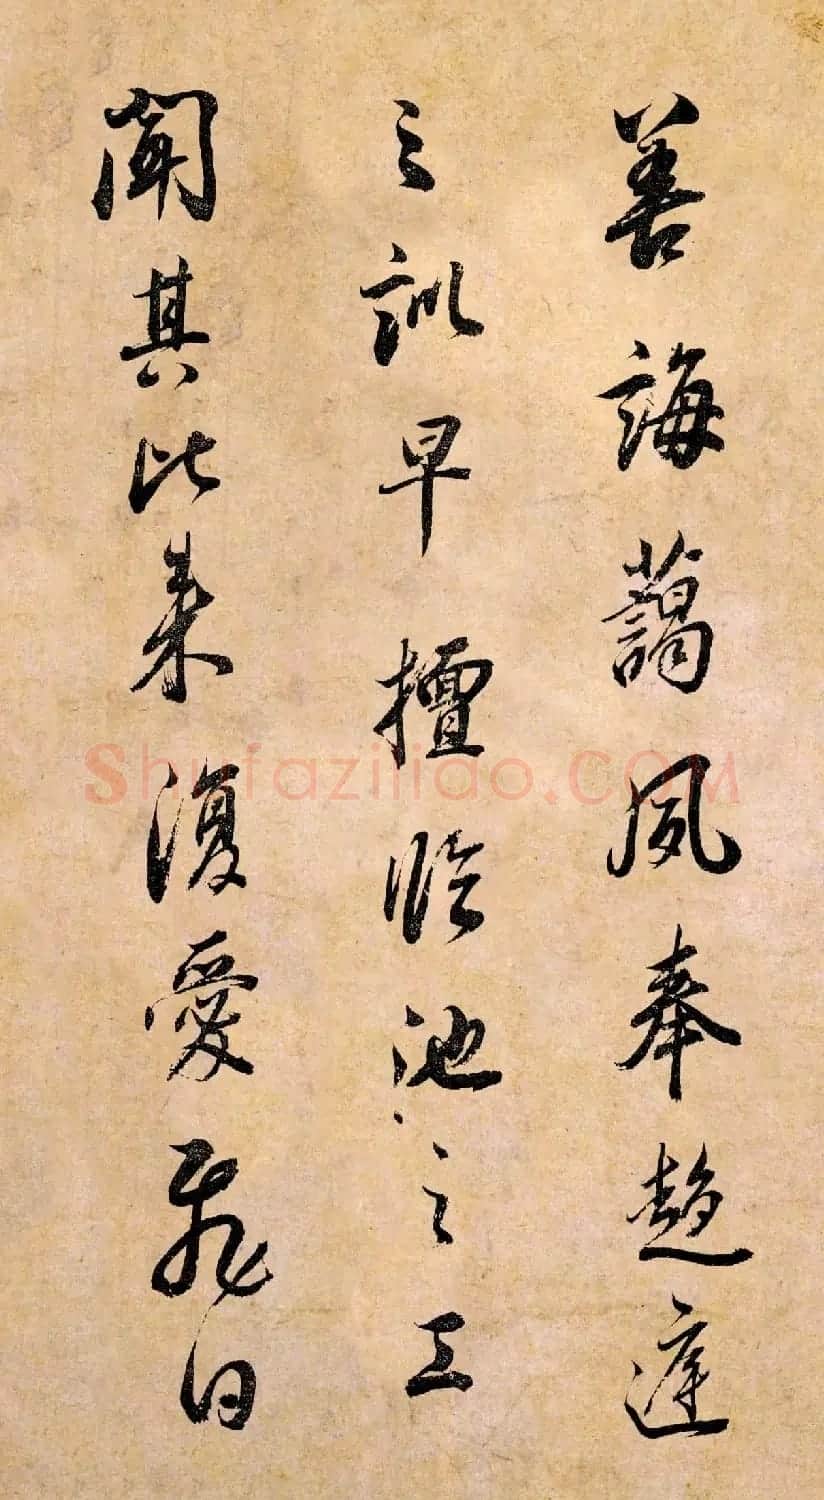 善誨藹夙奉趍遅
之訓早擅臨池之工
聞其比来復愛飛白
Shufaziliao.COM